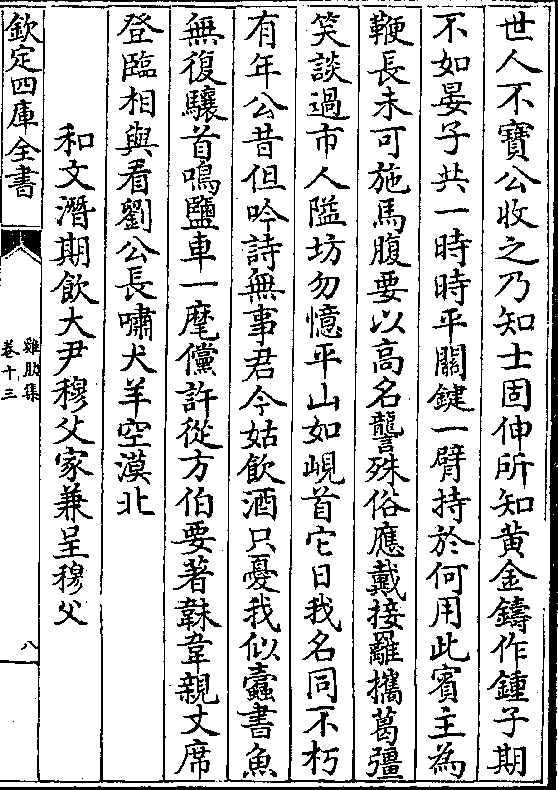 世人不寶公收之乃知士固伸所知黄金鑄作鍾子期
不如晏子共一時時平關鍵一臂持於何用此賓主為
鞭長未可施馬腹要以高名讋殊俗應戴接䍦攜葛彊
笑談過市人隘坊勿憶平山如峴首它日我名同不朽
有年公昔但吟詩無事君今姑飲酒只憂我似蠹書魚
無復驤首鳴鹽車一麾儻許從方伯要著韎韋親丈席
登臨相與看劉公長嘯犬羊空漠北
和文潛期飲大尹穆父家兼呈穆父
欽定四庫全書
雞肋集
卷十三
八